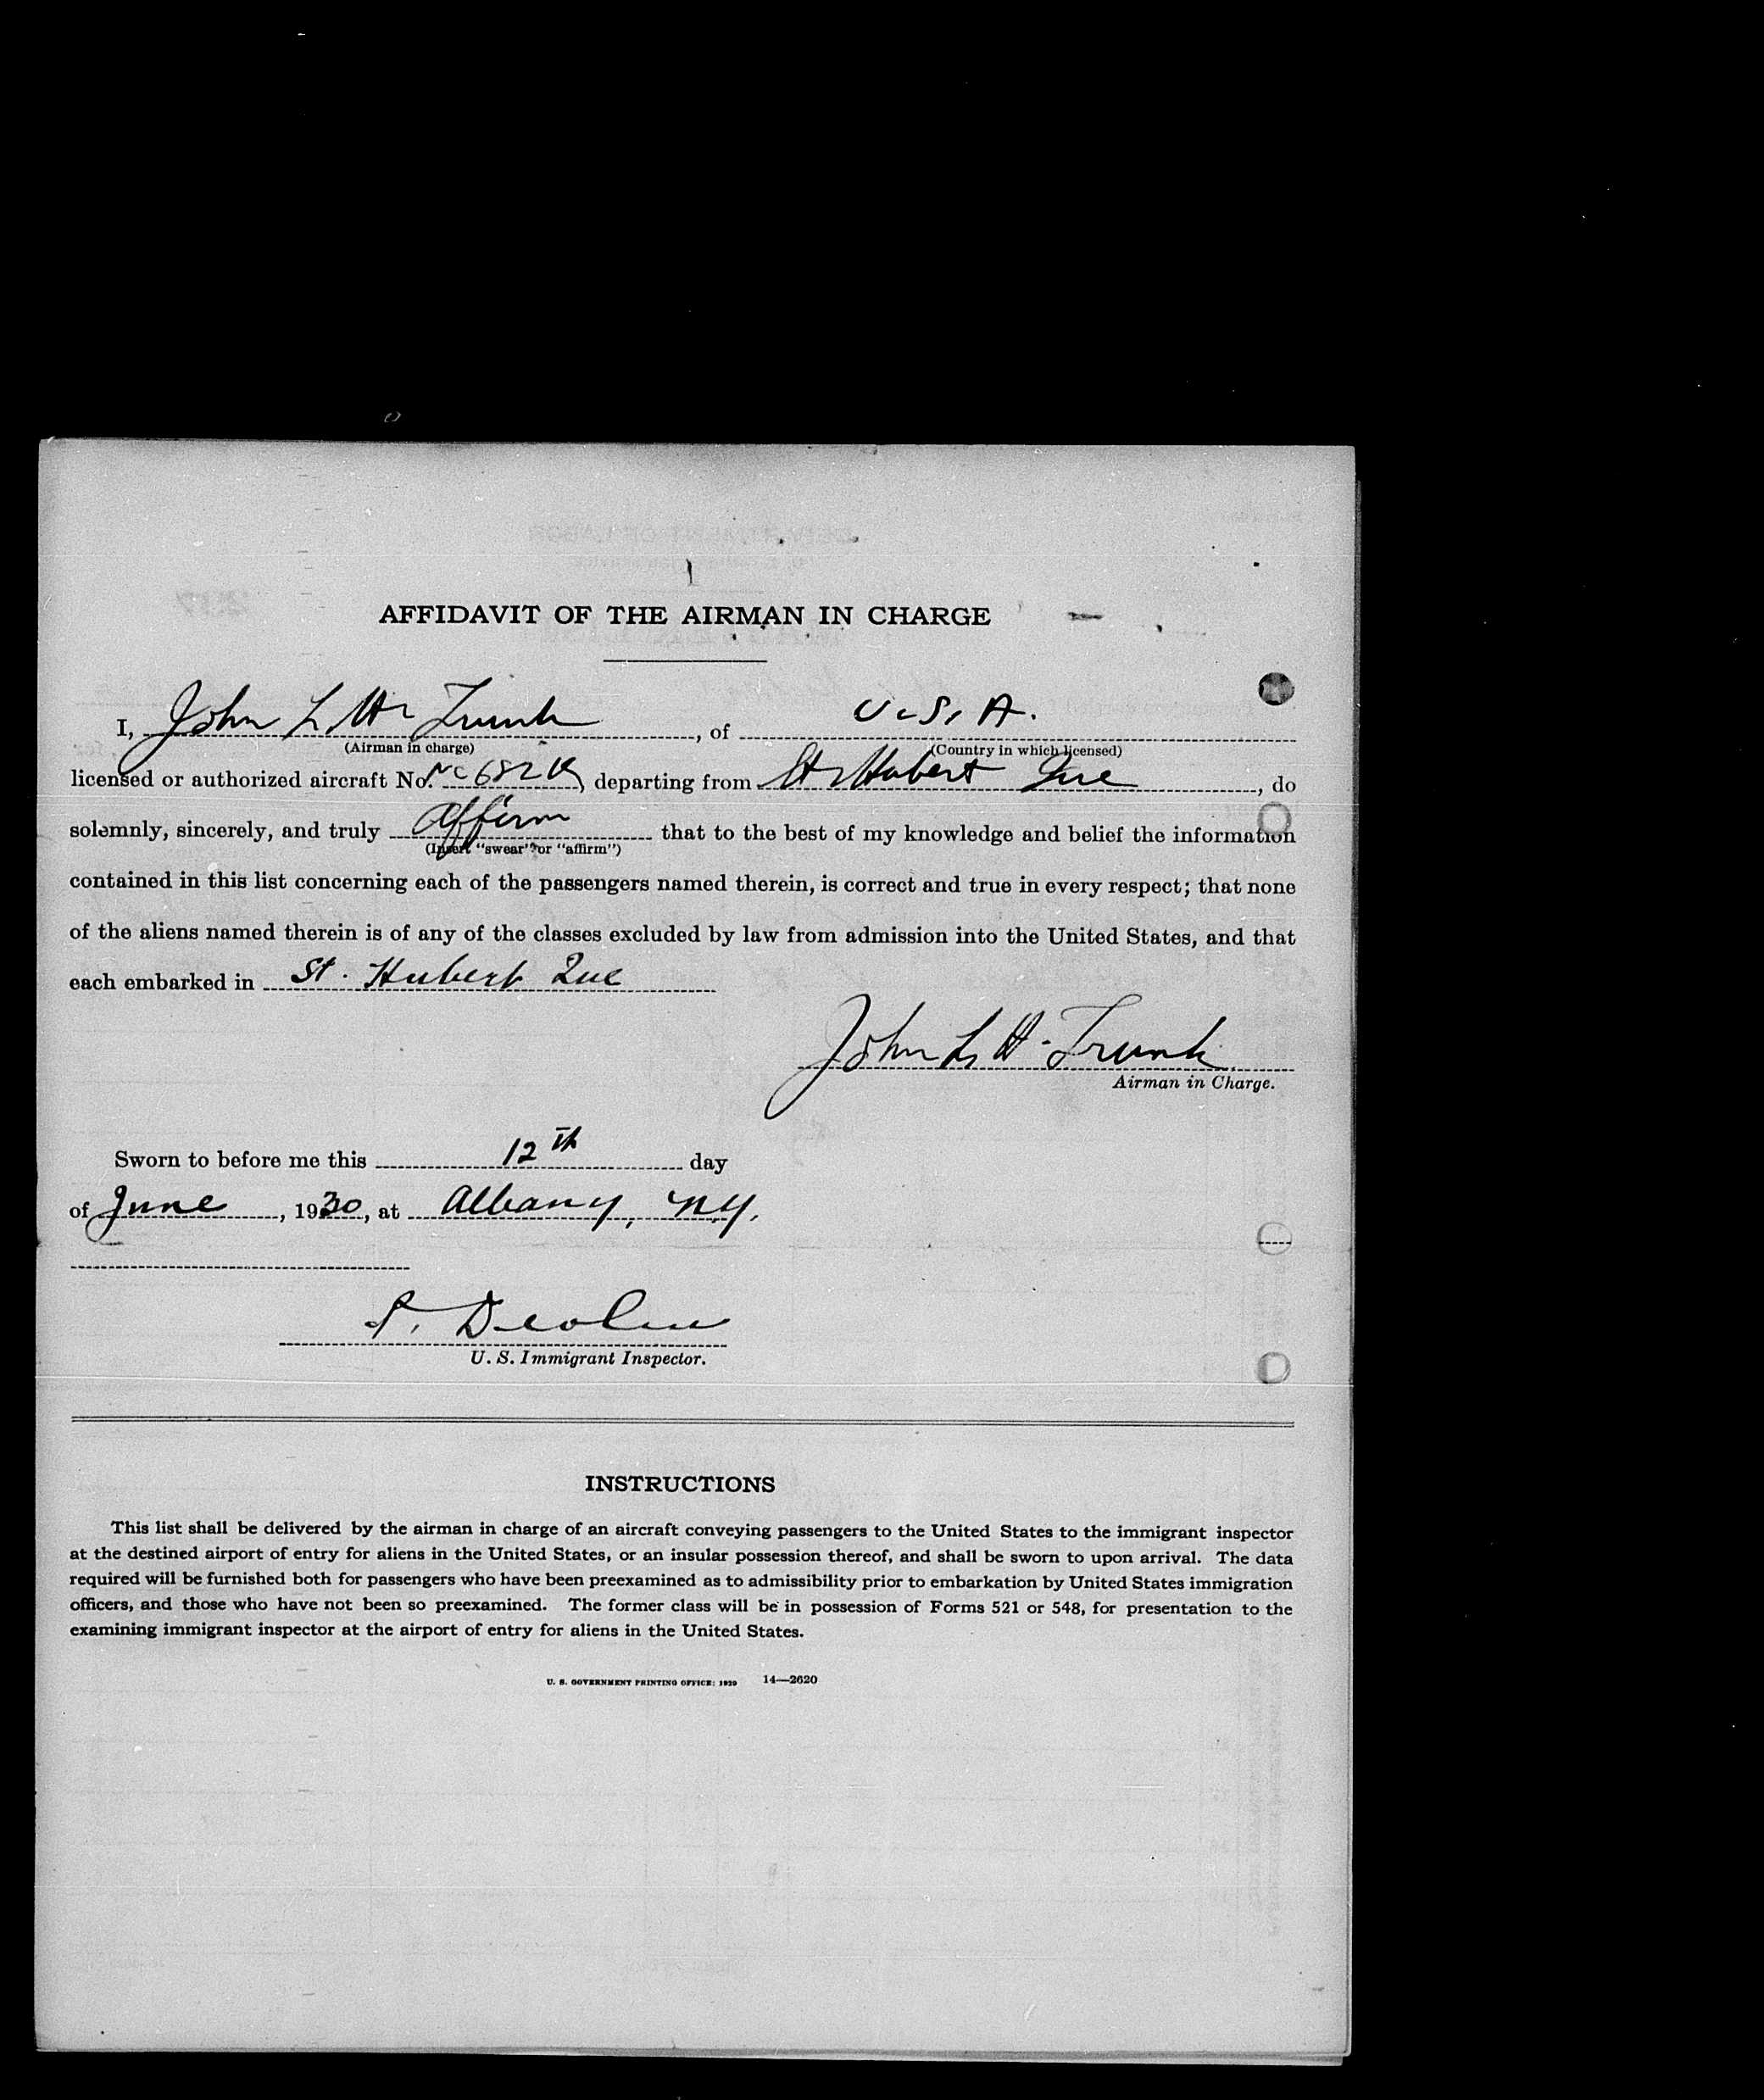 AFFIDAVIT OF THE AIRMAN IN CHARGE
I, John L. H. Trunk, of U.S.A.
(Airman in charge) (Country in which licensed)
licensed or authorized aircraft No. NC682K, departing from St Hubert Que, do
solemnly, sincerely, and truly affirm that to the best of my knowledge and belief the information
(Insert "swear" or "affirm")
contained in this list concerning each of the passengers named therein, is correct and true in every respect; that none
of the aliens named therein is of any of the classes excluded by law from admission into the United States, and that
each embarked in St. Hubert Que
John L. H. Trunk
Airman in Charge.
Sworn to before me this 12th day
of June, 1930, at Albany, N.Y.
P. Devlin
U. S. Immigrant Inspector.
INSTRUCTIONS
This list shall be delivered by the airman in charge of an aircraft conveying passengers to the United States to the immigrant inspector
at the destined airport of entry for aliens in the United States, or an insular possession thereof, and shall be sworn to upon arrival. The data
required will be furnished both for passengers who have been preexamined as to admissibility prior to embarkation by United States immigration
officers, and those who have not been so preexamined. The former class will be in possession of Forms 521 or 548, for presentation to the
examining immigrant inspector at the airport of entry for aliens in the United States.
U. S. GOVERNMENT PRINTING OFFICE: 1929 14—2620